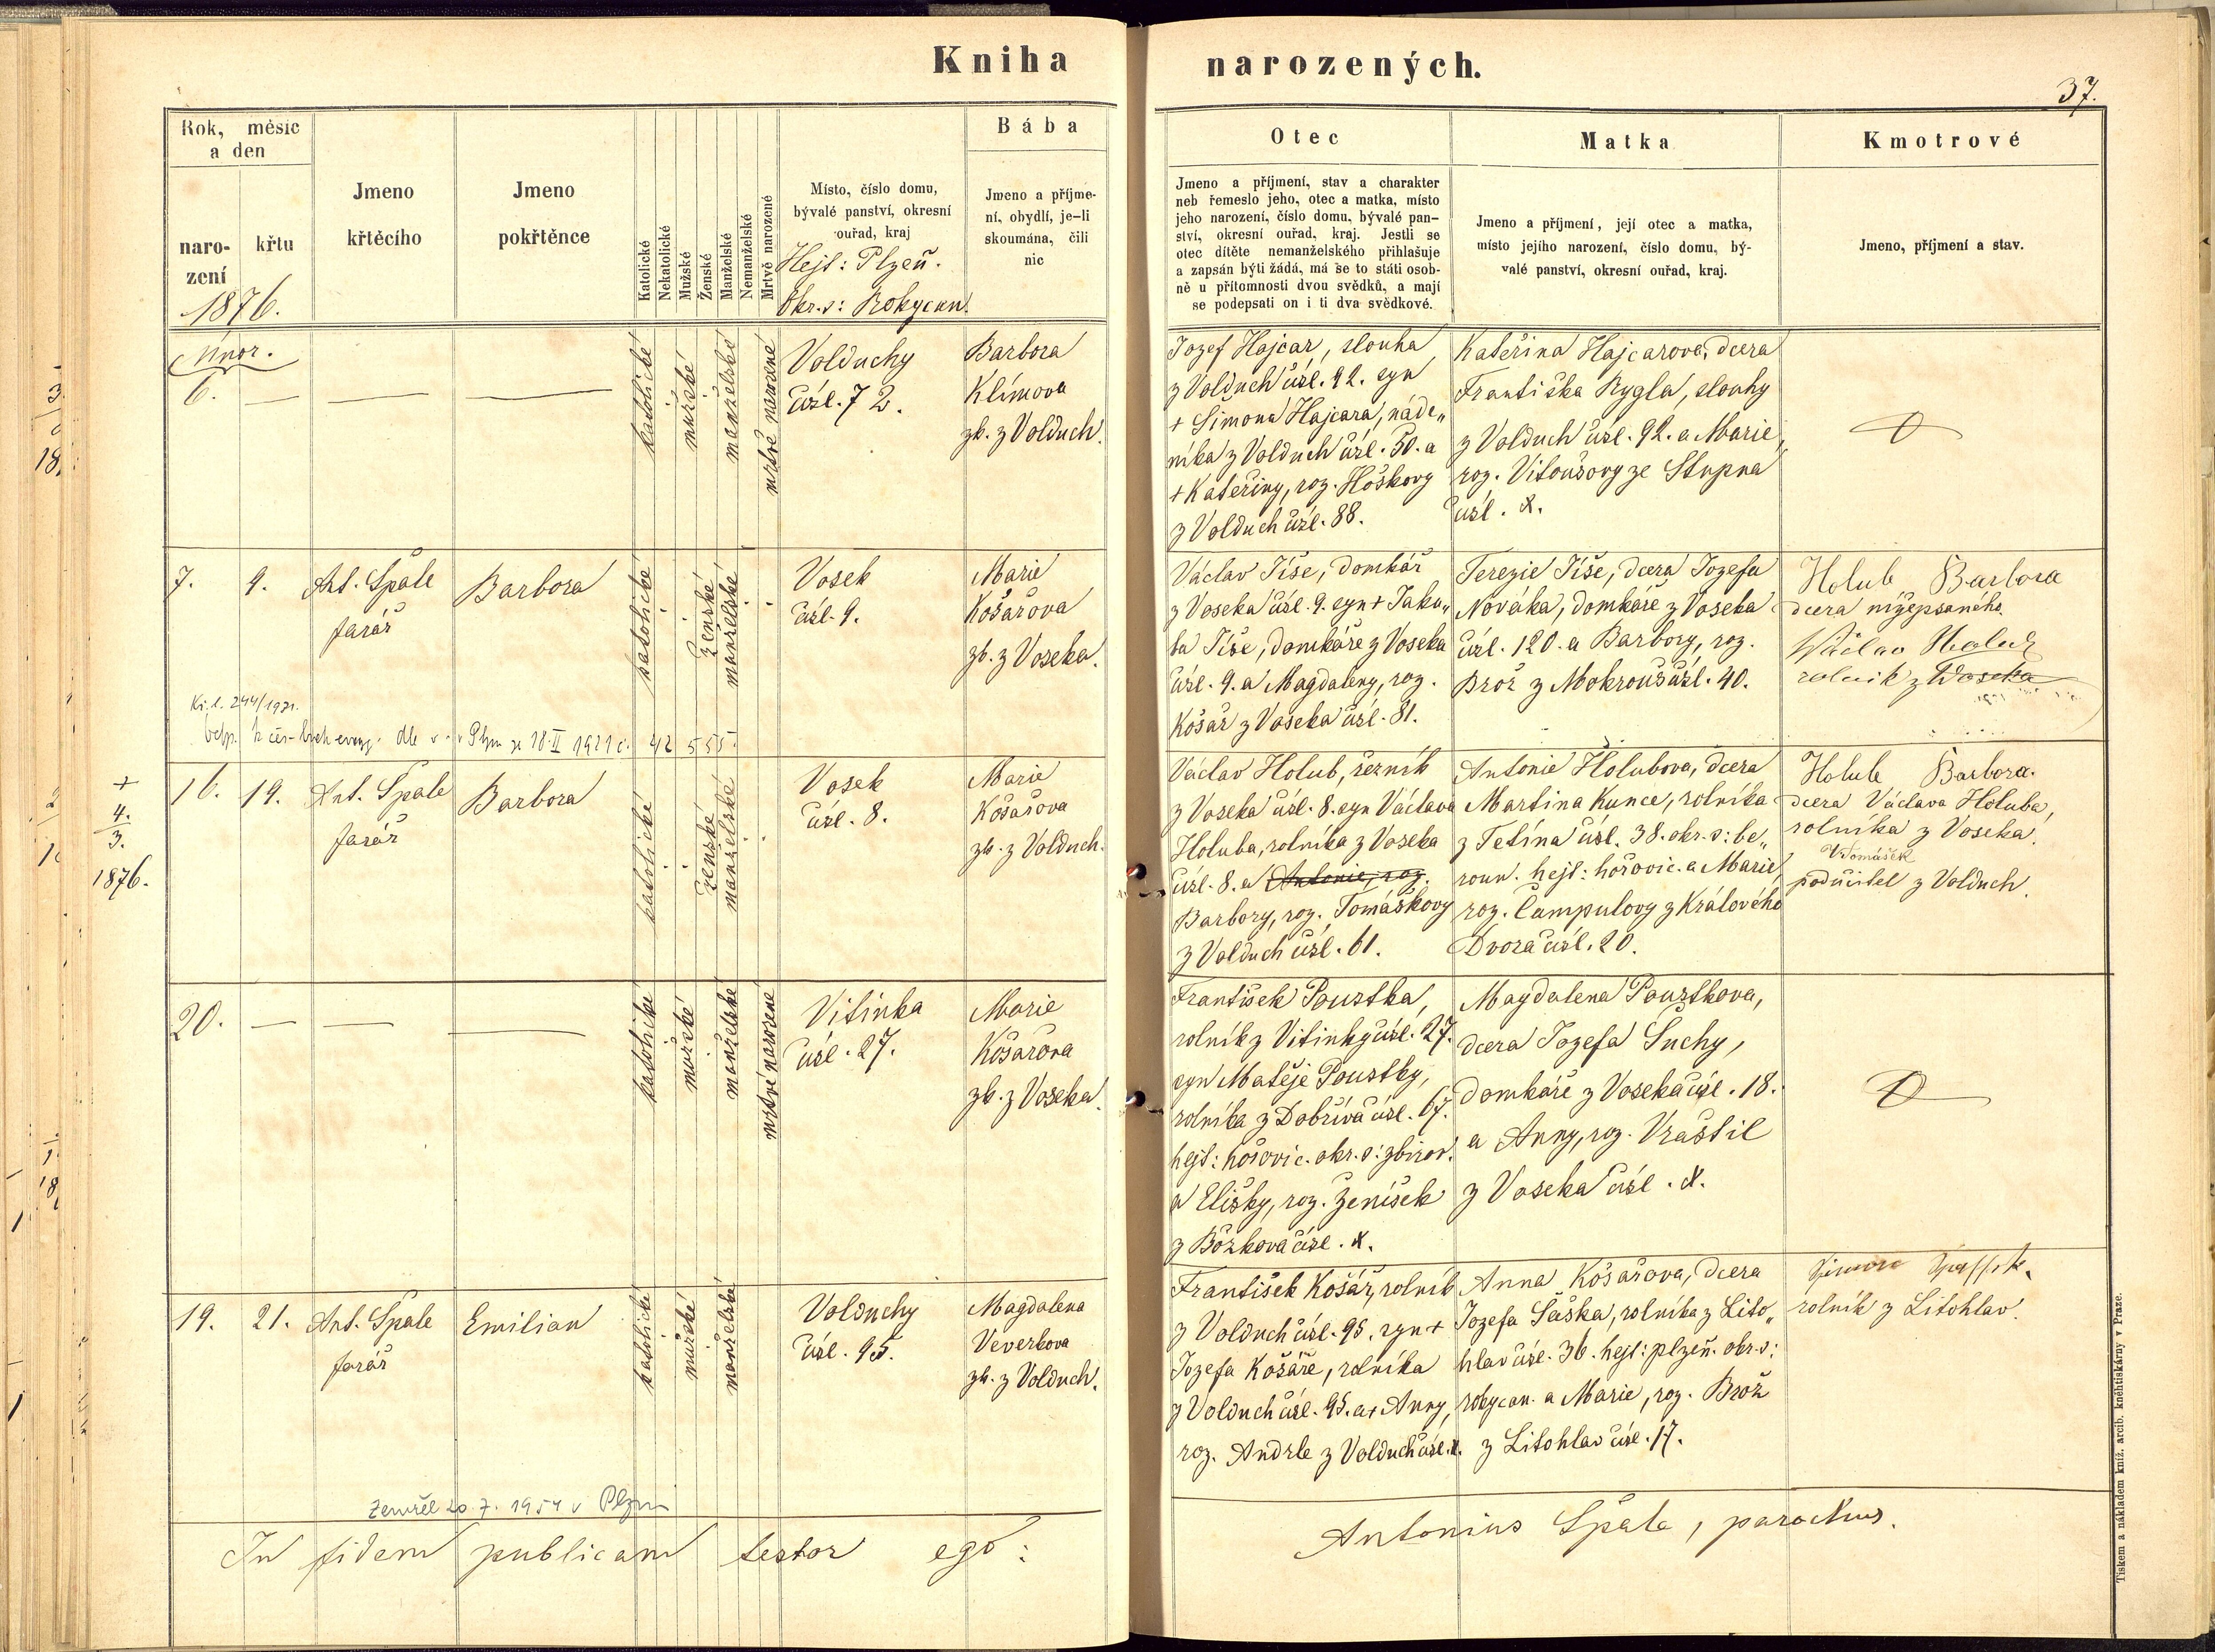 Kniha narozených.
37.
Rok, měsíc
a den
naro-
zení
křtu
1876.
Jmeno
křtěcího
Jmeno
pokřtěnce
Katolické
Nekatolické
Mužské
Ženské
Manželské
Nemanželské
Mrtvě narozené
Místo, číslo domu,
bývalé panství, okresní
ouřad, kraj
Hejt: Plzeň.
Okr.s: Rokycan.
Bába
Jmeno a příjme-
ní, obydlí, je-li
skoumána, čili
nic
Otec
Jmeno a příjmení, stav a charakter
neb řemeslo jeho, otec a matka, místo
jeho narození, číslo domu, bývalé pan-
ství, okresní ouřad, kraj. Jestli se
otec dítěte nemanželského přihlašuje
a zapsán býti žádá, má se to státi osob-
ně u přítomnosti dvou svědků, a mají
se podepsati on i ti dva svědkové.
Matka
Jmeno a příjmení, její otec a matka,
místo jejího narození, číslo domu, bý-
valé panství, okresní ouřad, kraj.
Kmotrové
Jmeno, příjmení a stav.
únor.
6. — — —
katolické
mužské
manželské
mrtvě narozené
Volduchy
čísl. 72.
Barbora
Klímova
zk. z Volduch.
Jozef Hajcar, slouha
z Volduch čísl. 92. syn
+ Šimona Hajcara, náde„
níka z Volduch čísl. 50. a
+ Kateřiny, roz. Hoškovy
z Volduch čísl. 88.
Kateřina Hajcarova, dcera
Františka Rygla, slouhy
z Volduch čísl. 92. a Marie,
roz. Vitoušovy ze Stupna
čísl. X.
7. 9. Ant. Špale
farář
Barbora
katolické
ženské
manželské
Vosek
čísl. 9.
Marie
Košařova
zk. z Voseka.
Václav Tíše, domkář
z Voseka čísl. 9. syn + Jaku„
ba Tíše, domkáře z Voseka
čísl. 9. a Magdaleny, roz.
Košař z Voseka čísl. 81.
Terezie Tíše, dcera Jozefa
Nováka, domkáře z Voseka
čísl. 120. a Barbory, roz.
Brož z Mokrouš čísl. 40.
Holub Barbora
dcera nížepsaného
Václav Holub
rolník z Woseka
244/1921.
18. II 1921 č. 42 555.
+
4.
3.
1876.
16. 19. Ant. Špale
farář
Barbora
katolické
ženské
manželské
Vosek
čísl. 8.
Marie
Košařova
zk. z Volduch.
Václav Holub, řezník
z Voseka čísl. 8. syn Václava
Holuba, rolníka z Voseka
čísl. 8. a Antonie, roz.
Barbory, roz. Tomáškovy
z Volduch čísl. 61.
Antonie Holubova, dcera
Martina Kunce, rolníka
z Tetína čísl. 38. okr. s: be„
roun. hejt: hořovic. a Marie,
roz. Campulovy z Králového
Dvora čísl. 20.
Holub Barbora.
dcera Václava Holuba,
rolníka z Voseka.
VTomášek
podučitel z Volduch.
20. — — —
katolické
mužské
manželské
mrtvě narozené
Vitinka
čísl. 27.
Marie
Košařova
zk. z Voseka.
František Poustka,
rolník z Vitinky čísl. 27.
syn Matěje Poustky,
rolníka z Dobříva čísl. 67.
hejt: hořovic. okr. s: zbirov.
a Elišky, roz. Ženíšek
z Božkova čísl. X.
Magdalena Poustkova,
dcera Jozefa Suchy,
domkáře z Voseka čísl. 18.
a Anny, roz. Vraštil
z Voseka čísl. X.
19. 21. Ant. Špale
farář
Emilian
katolické
mužské
manželské
Volduchy
čísl. 95.
Magdalena
Veverkova
zk. z Volduch.
František Košář, rolník
z Volduch čísl. 95. syn +
Jozefa Košáře, rolníka
z Volduch čísl. 95. a + Anny,
roz. Andrle z Volduch čísl. X.
Anna Košařova, dcera
Jozefa Šaška, rolníka z Lito„
hlav čísl. 36. hejt: plzeň. okr. s:
rokycan. a Marie, roz. Brož
z Litohlav čísl. 17.
rolník z Litohlav.
Zemřel 20. 7. 1954 v Plzni
In fidem publicam testor ego:
Antonius Špale, parochus.
Tiskem a nákladem kníž. arcib. kněhtiskárny v Praze.